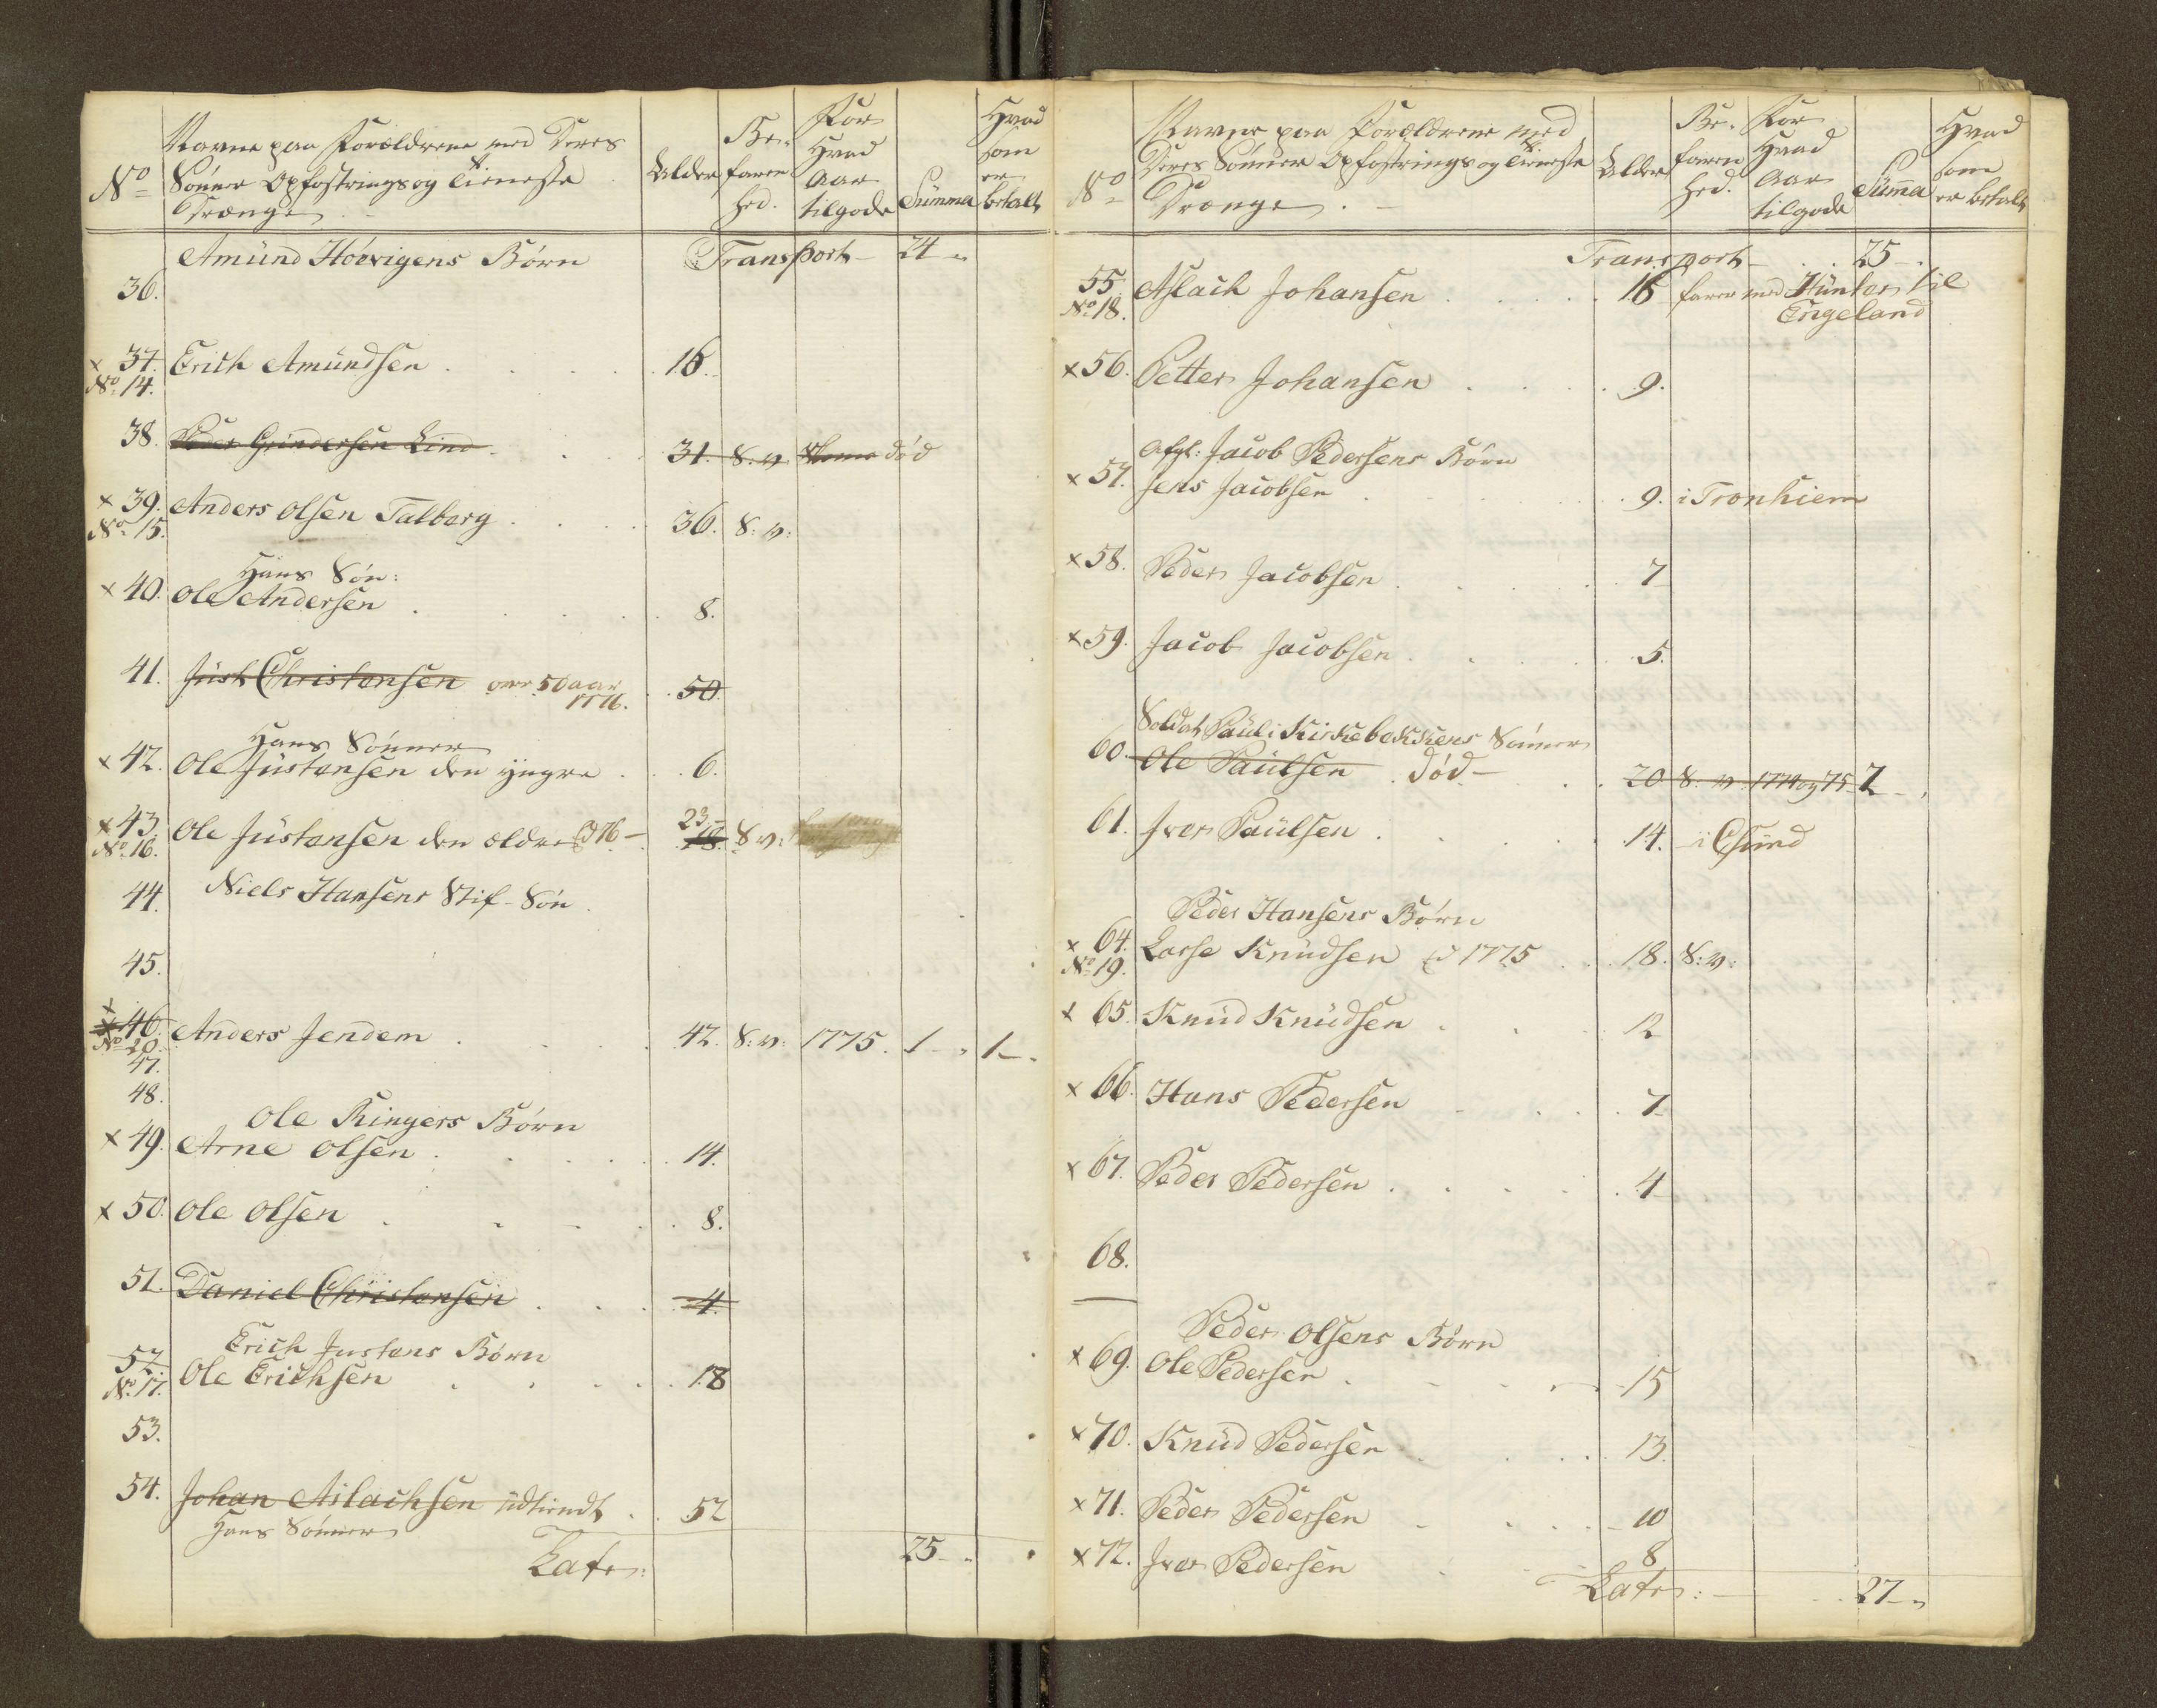 No
Navne paa Forældrene med Deres
Sönner Opfostrings og Tieneste
Drænge
Alder
Be-
faren
hed.
For
Hvad
Aar
tilgode
Summa
Hvad
som
er
betalt
Amünd Hövigens Börn Transport - 24 -
36.
x 37. Erich Amündsen . . . 16.
No 14.
38. Peder Gündersen Lind . . 31. S: v. død
x 39. Anders Olsen Talberg . . . 36. S: v:
No 15.
Hans Sön:
x 40. Ole Andersen . . . 8.
41. Jüst Christansen over 50 aar . 50.
1776.
Hans Sönner
x 42. Ole Jüstansen den yngre . . 6.
23 -
x 43. Ole Jüstansen den ældre 776 - 18. S: v:
No 16.
44. Niels Hansens Stif-Sön.
45.
x 46. Anders Jendem . . . 42. S: v: 1775. 1 - 1 -
No 20.
47.
48.
Ole Ringers Börn
x 49. Arne Olsen . . . 14.
x 50. Ole Olsen . . . 8.
51. Daniel Christansen . . . 4.
Erich Justans Börn
52. Ole Erichsen . . . 18
No 17.
53.
54. Johan Aslachsen üdtiendt . . 52
Hans Sönner
Lats: 25 -
No
Navne paa Forældrene med
Deres Sönner Opfostrings og Tieneste
Drænge . -
Alder
Be-
faren
hed.
For
Hvad
Aar
tilgode
Summa
Hvad
som
er betalt
Transport - . . 25 -
55. Aslach Johansen . . . 16 farer med Hünter til
No 18. Engeland
x 56. Petter Johansen . . . 9.
Afgl: Jacob Pedersens Börn
x 57. Jens Jacobsen . . . 9. i Tronhiem
x 58. Peder Jacobsen . . . 7
x 59. Jacob Jacobsen . . . 5.
Soldat Paül i Kirkebakkens Sönner
60. Ole Paülsen . död - . . 20 S: v: 1774 og 75 2 -
61. Iver Paülsen . . . 14. - i Ösünd
Peder Hansens Börn
x 64. Lasse Knüdsen 1775 . . 18. S: v:
No 19.
x 65. Knüd Knüdsen . . . 12
x 66. Hans Pedersen . . . 7
x 67. Peder Pedersen . . . 4
68.
Peder Olsens Börn
x 69. Ole Pedersen . . . 15
x 70. Knüd Pedersen . . . 13.
x 71. Peder Pedersen . . . 10
x 72. Iver Pedersen . . . 8.
Lats: - . . 27 -